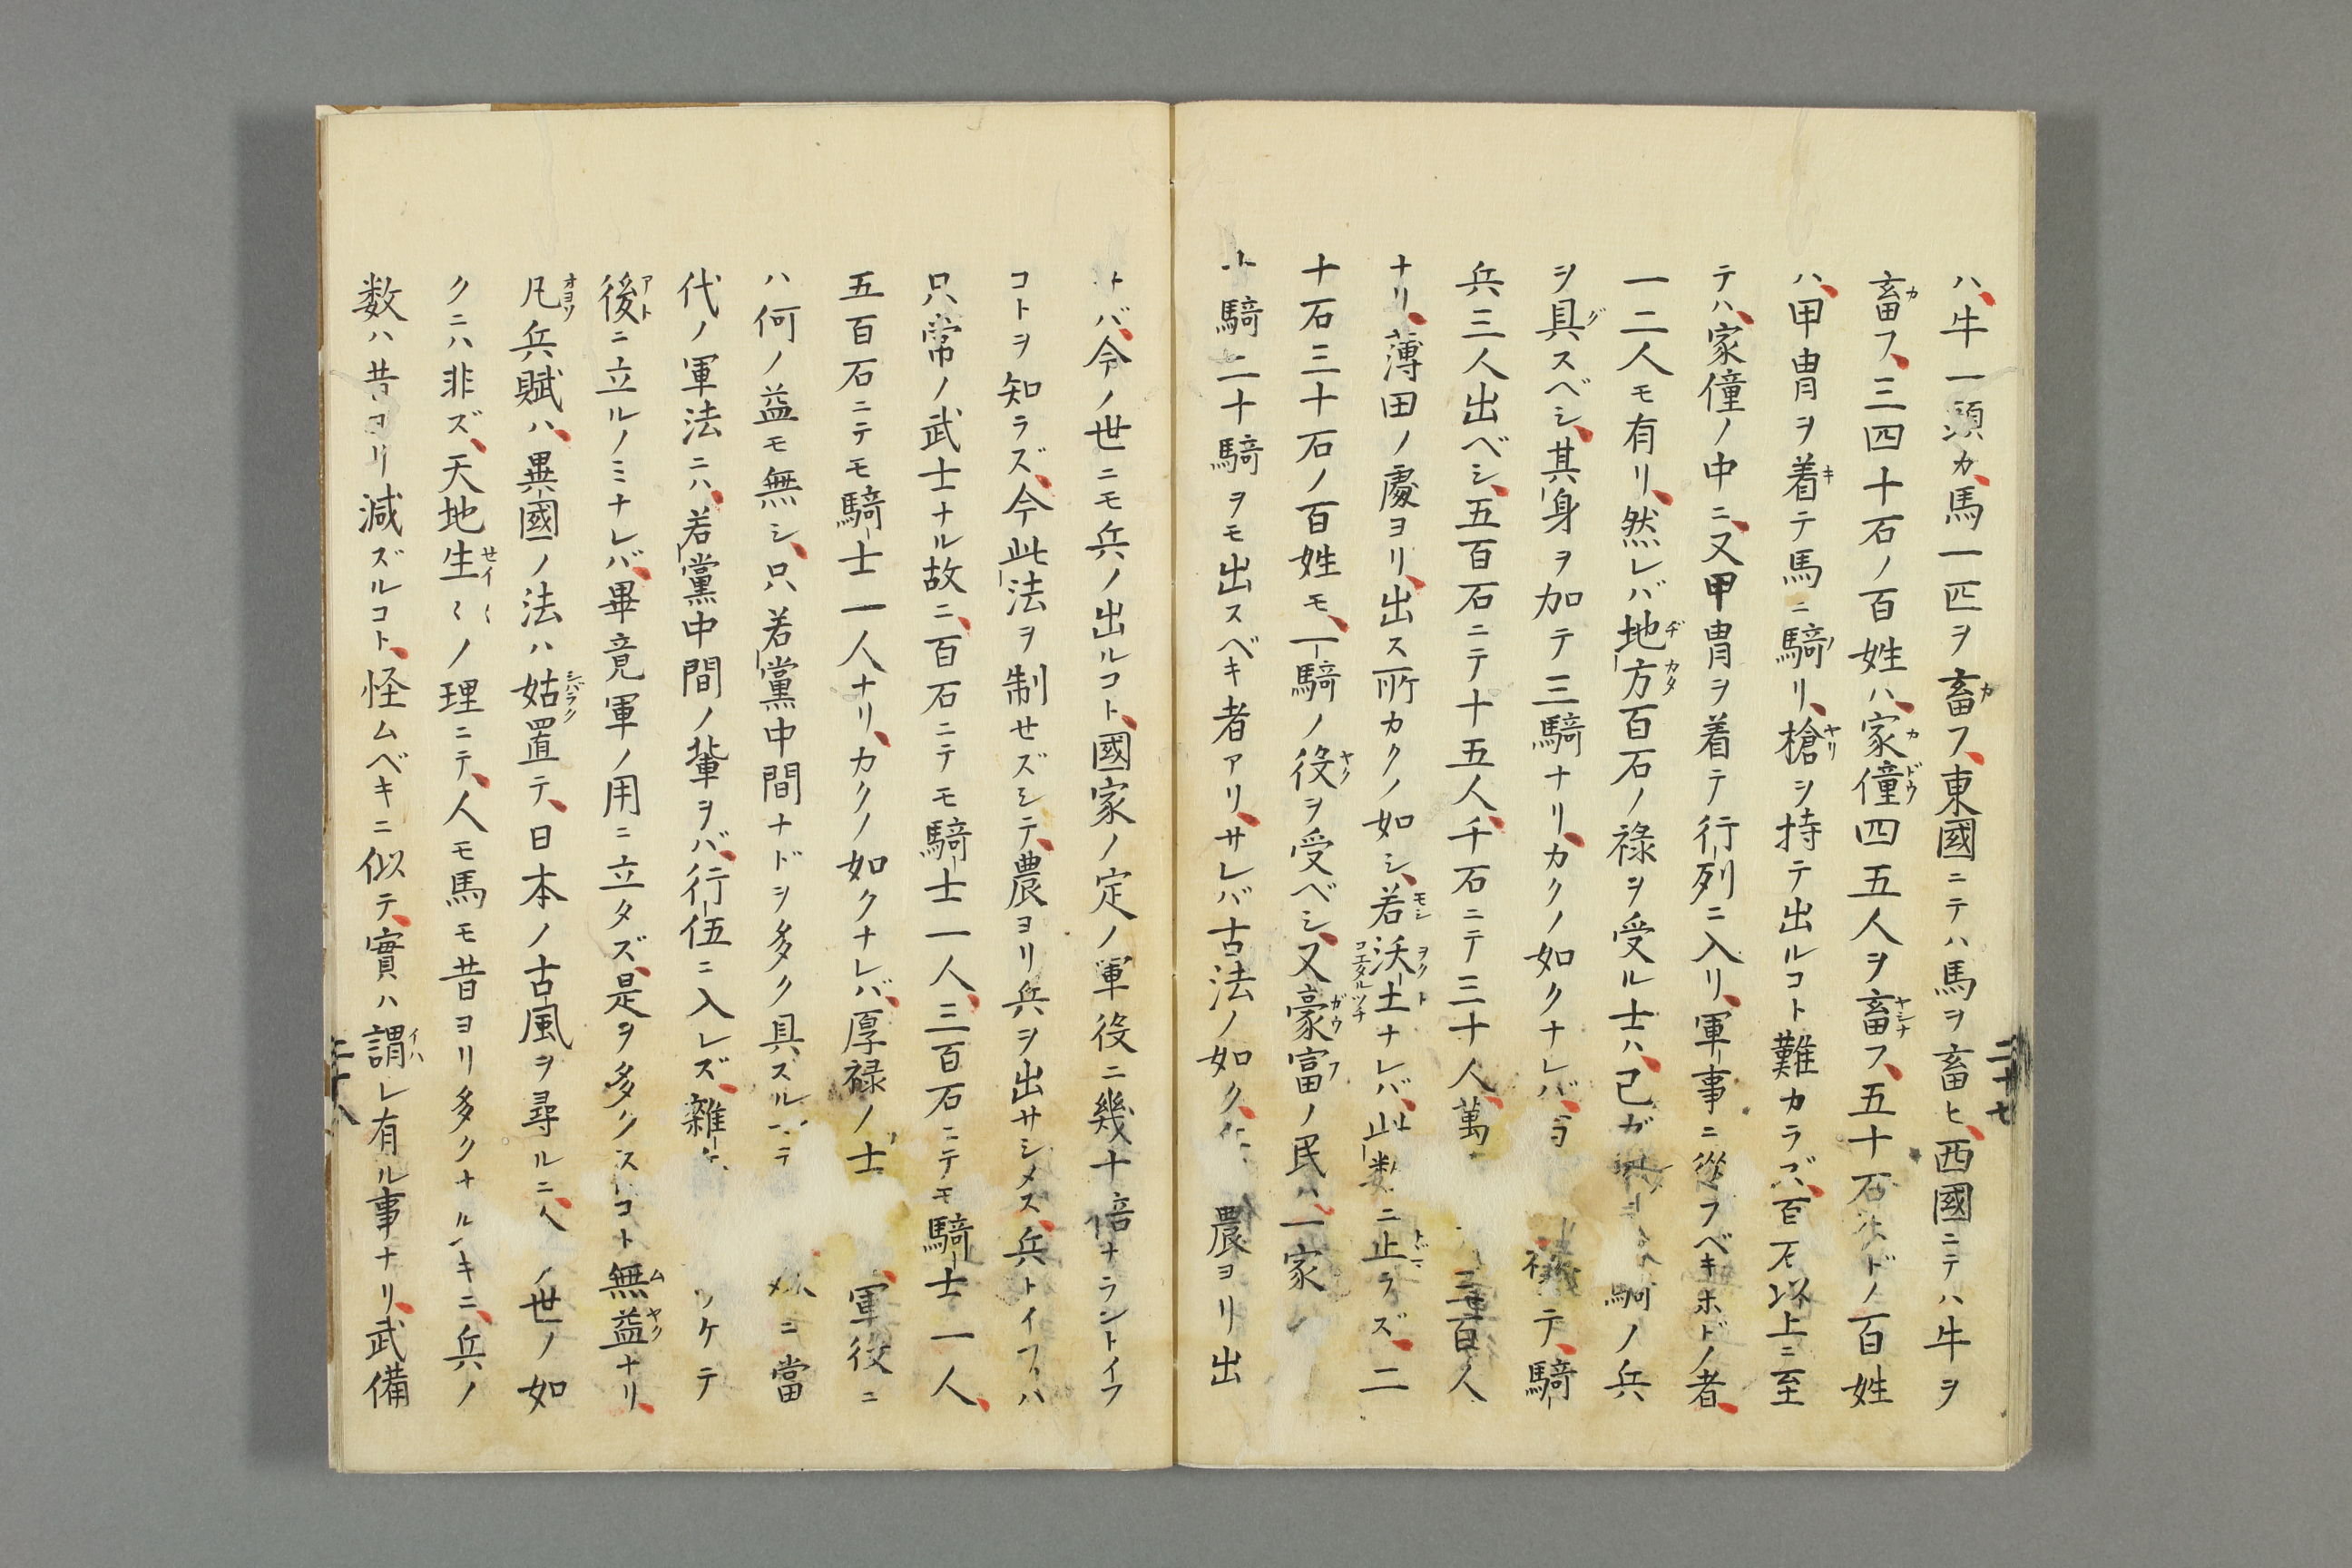 ハ、牛一頭カ、馬一匹ヲ畜フ、東國ニテハ馬ヲ畜ヒ、西國ニテハ牛ヲ
畜フ、三四十石ノ百姓ハ、家僮四五人ヲ畜フ、五十石ホドノ百姓
ハ、甲冑ヲ着テ馬ニ騎リ、槍ヲ持テ出ルコト難カラズ、百石以上ニ至
テハ、家僮ノ中ニ、又甲冑ヲ着テ行列ニ入リ、軍事ニ從フベキホドノ者、
一二人モ有リ、然レバ地方百石ノ祿ヲ受ル士ハ、己ガ 騎ノ兵
ヲ具スベシ、其身ヲ加テ三騎ナリ、カクノ如クナレバ、百 祿テ、騎
兵三人出ベシ、五百石ニテ十五人、千石ニテ三十人、萬 三百人
ナリ、薄田ノ處ヨリ、出ス所カクノ如シ、若沃土ナレバ、此数ニ止ラズ、二
十石三十石ノ百姓モ、一騎ノ役ヲ受ベシ、又豪富ノ民ハ、一家ノ
十騎二十騎ヲモ出スベキ者アリ、サレバ古法ノ如ク、 農ヨリ出
二十七
サバ、今ノ世ニモ兵ノ出ルコト、國家ノ定ノ軍役ニ幾十倍ナラントイフ
コトヲ知ラズ、今此法ヲ制セズシテ、農ヨリ兵ヲ出サシメス、兵トイフハ
只常ノ武士ナル故ニ、百石ニテモ騎士一人、三百石ニテモ騎士一人、
五百石ニテモ騎士一人ナリ、カクノ如クナレバ、厚禄ノ士 軍役ニ
ハ何ノ益モ無シ、只若黨中間ナドヲ多ク具スル テ ニ當
代ノ軍法ニハ、若黨中間ノ輩ヲバ、行伍ニ入レズ、雜 ツケテ
後ニ立ルノミナレバ、畢竟軍ノ用ニ立タズ、是ヲ多クスルコト無益ナリ、
凡兵賦ハ、異國ノ法ハ姑置テ、日本ノ古風ヲ尋ルニ、今ノ世ノ如
クニハ非ズ、天地生〻ノ理ニテ、人モ馬モ昔ヨリ多クナルベキニ、兵ノ
数ハ昔ヨリ減ズルコト、怪ムベキニ似テ、實ハ謂レ有ル事ナリ、武備
二十八